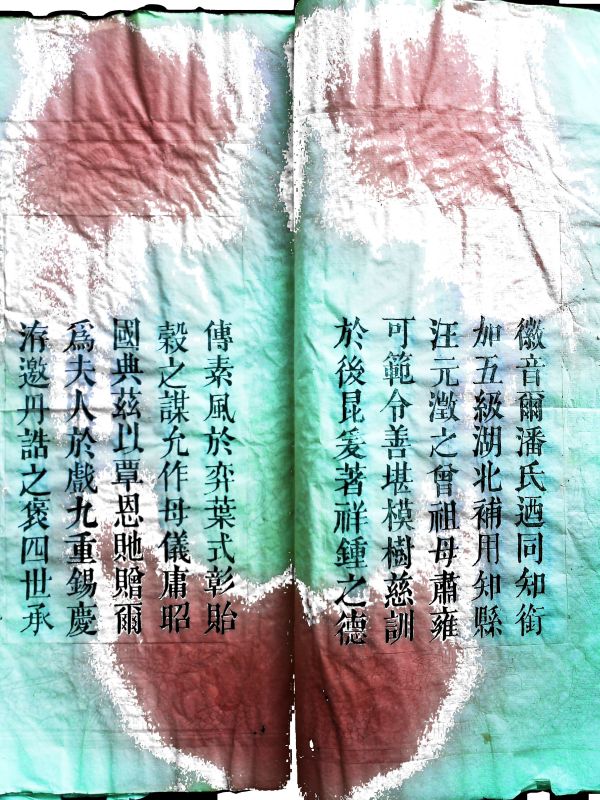 徽音爾潘氏迺同知銜
加五級湖北補用知縣
汪元澂之曾祖母肅雍
可範令善堪模樹慈訓
於後昆爰著祥鍾之德
傳素風於弈葉式彰貽
榖之謀允作母儀庸昭
國典茲以覃恩貤贈爾
爲夫人於戲九重錫慶
洊邀丹誥之褒四世承